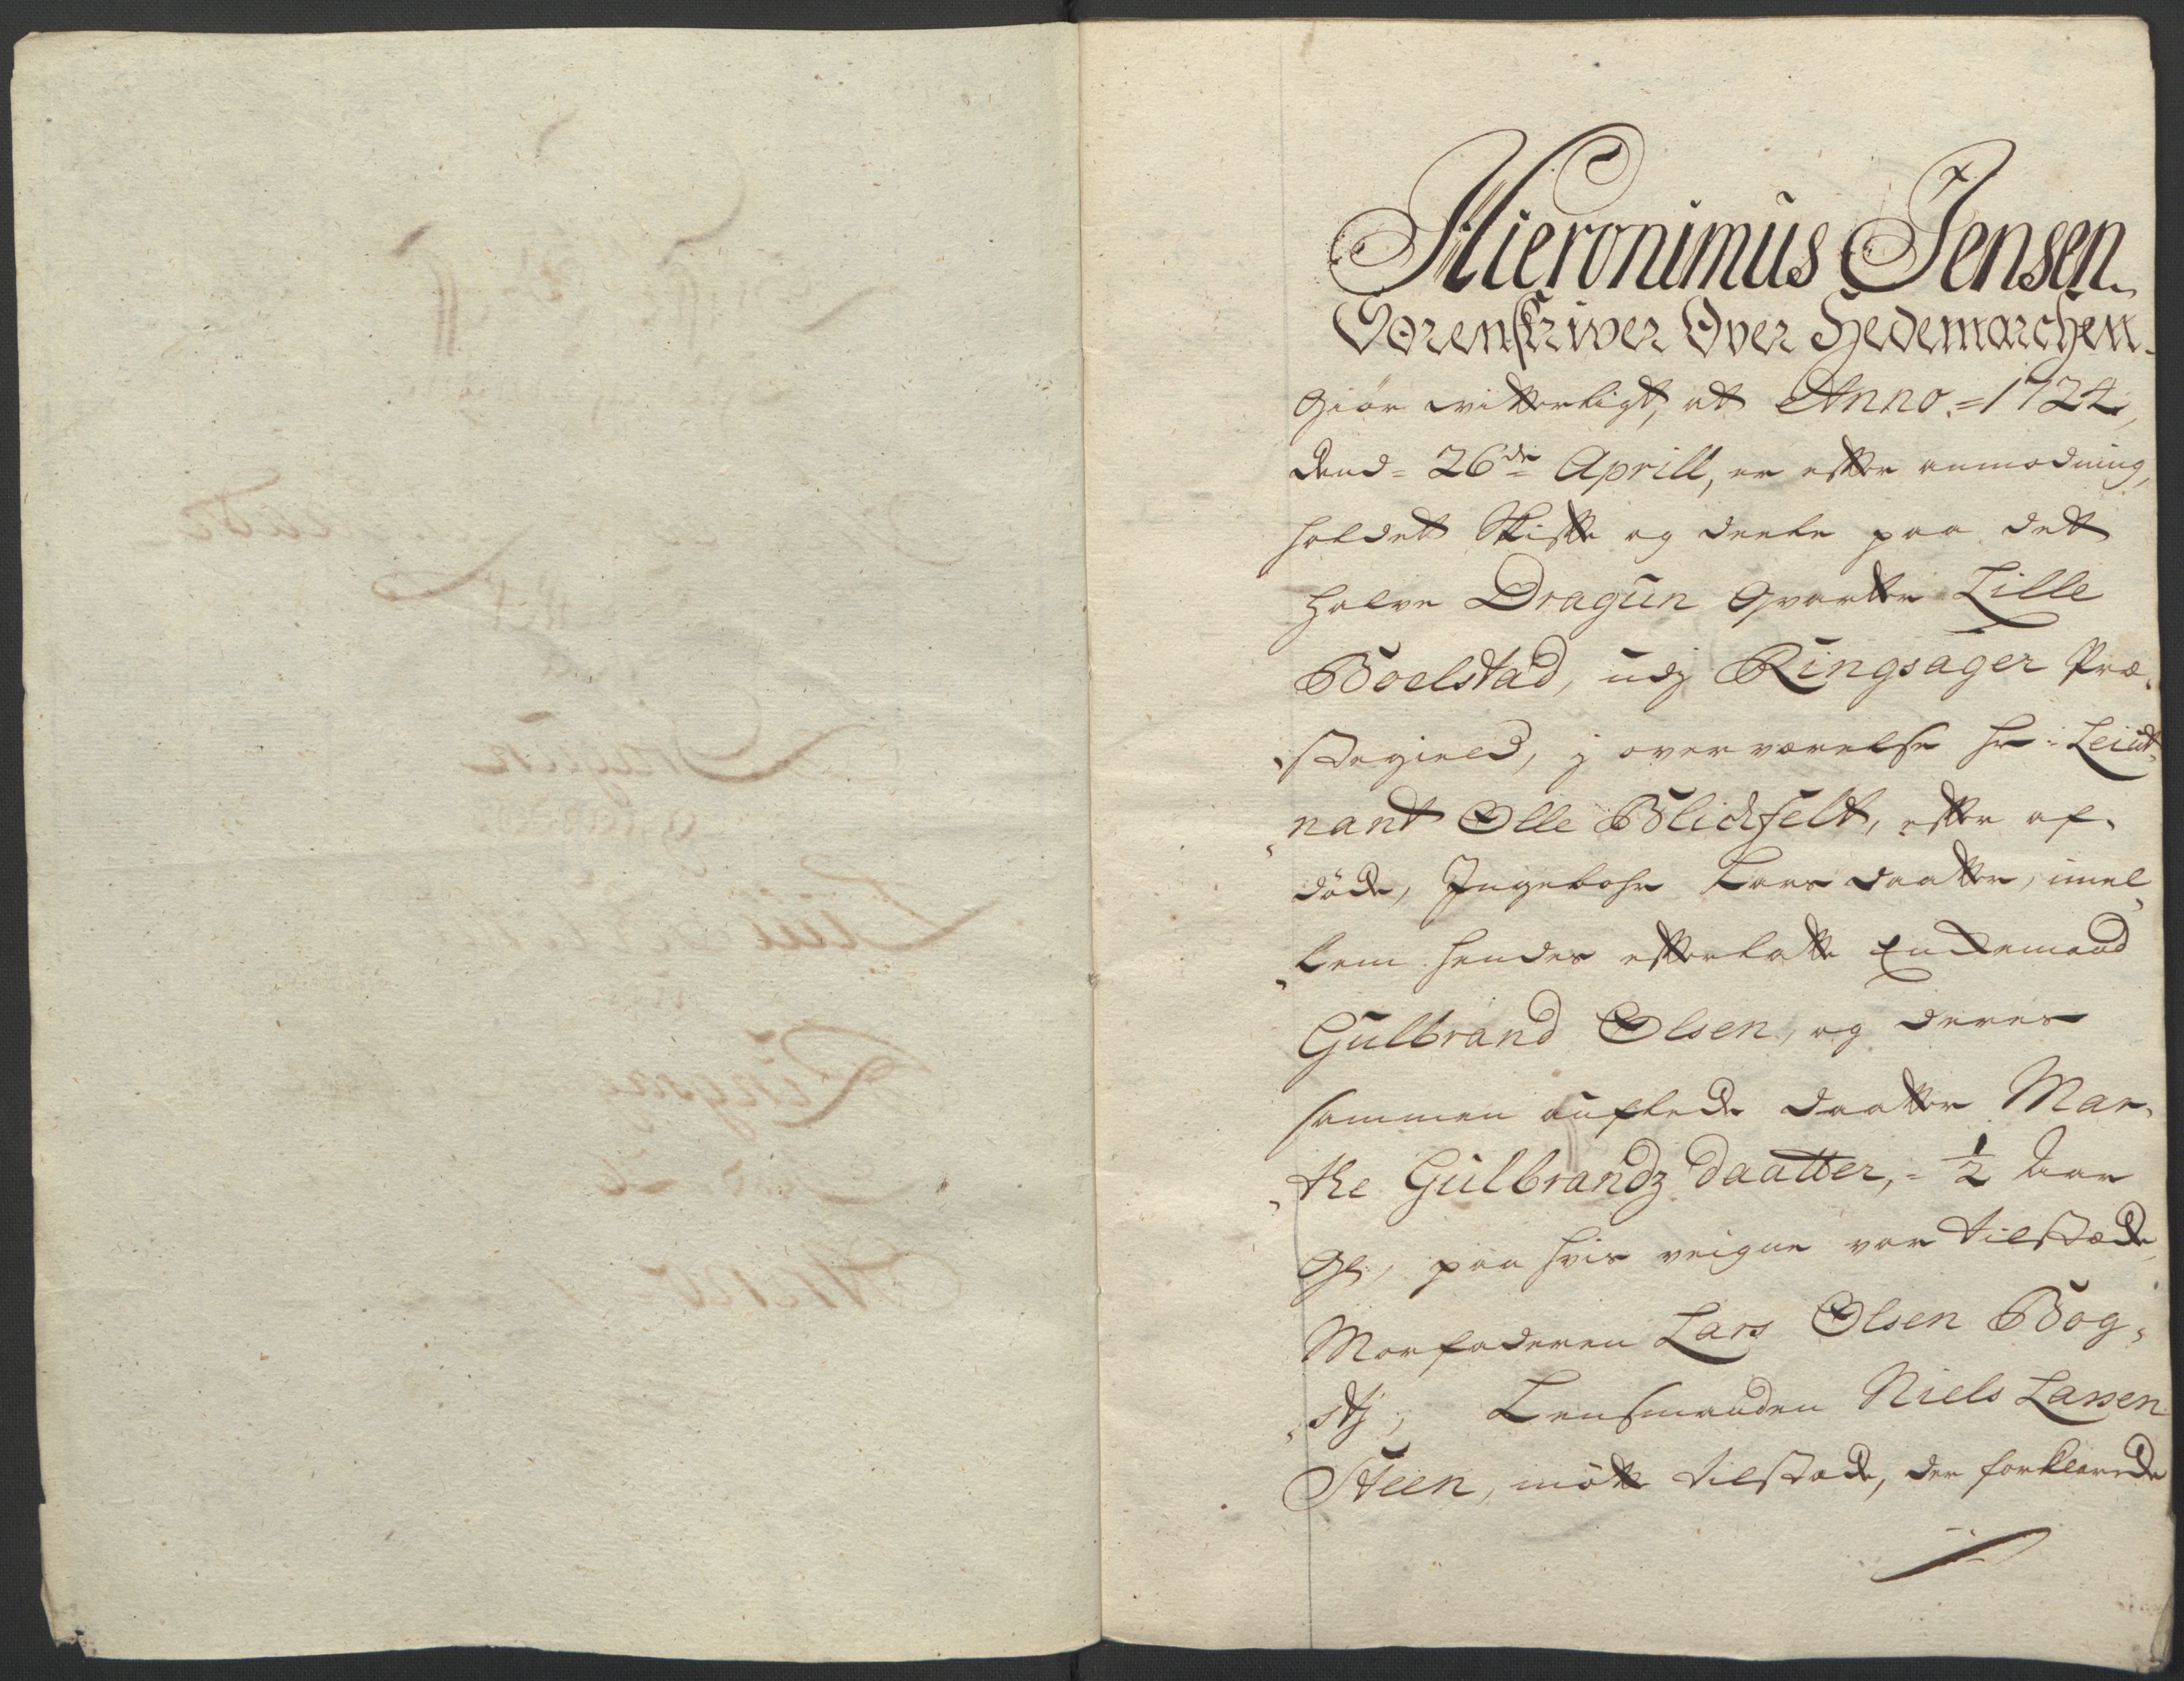 Hieronimus Jensen
Sorenskriver Over Hedemarchen
Giör witterligt, at Anno = 1724,
dend = 26de Aprill, er effter anmodning,
holdet Skiffte og deele paa det
halve Dragun Qvarteer Lille
Boelstad, udj Ringsager Præ-
stegield, j overværelse hr: Leut-
nant Olle Blichfelt, effter af-
döde, Ingebohr Lars daatter, imel-
lem hendes effterlatte Enckemand
Gulbrand Olsen, og deres
sammen auflede daatter Mar-
the Gulbrandz daatter, = ½ aar
Gl, paa hvis veigne var tilstæde
Morfaderen Lars Olsen Bog-
stj, Lensmanden Niels Larsen
Steen, mötte tilstæde, der forklarede